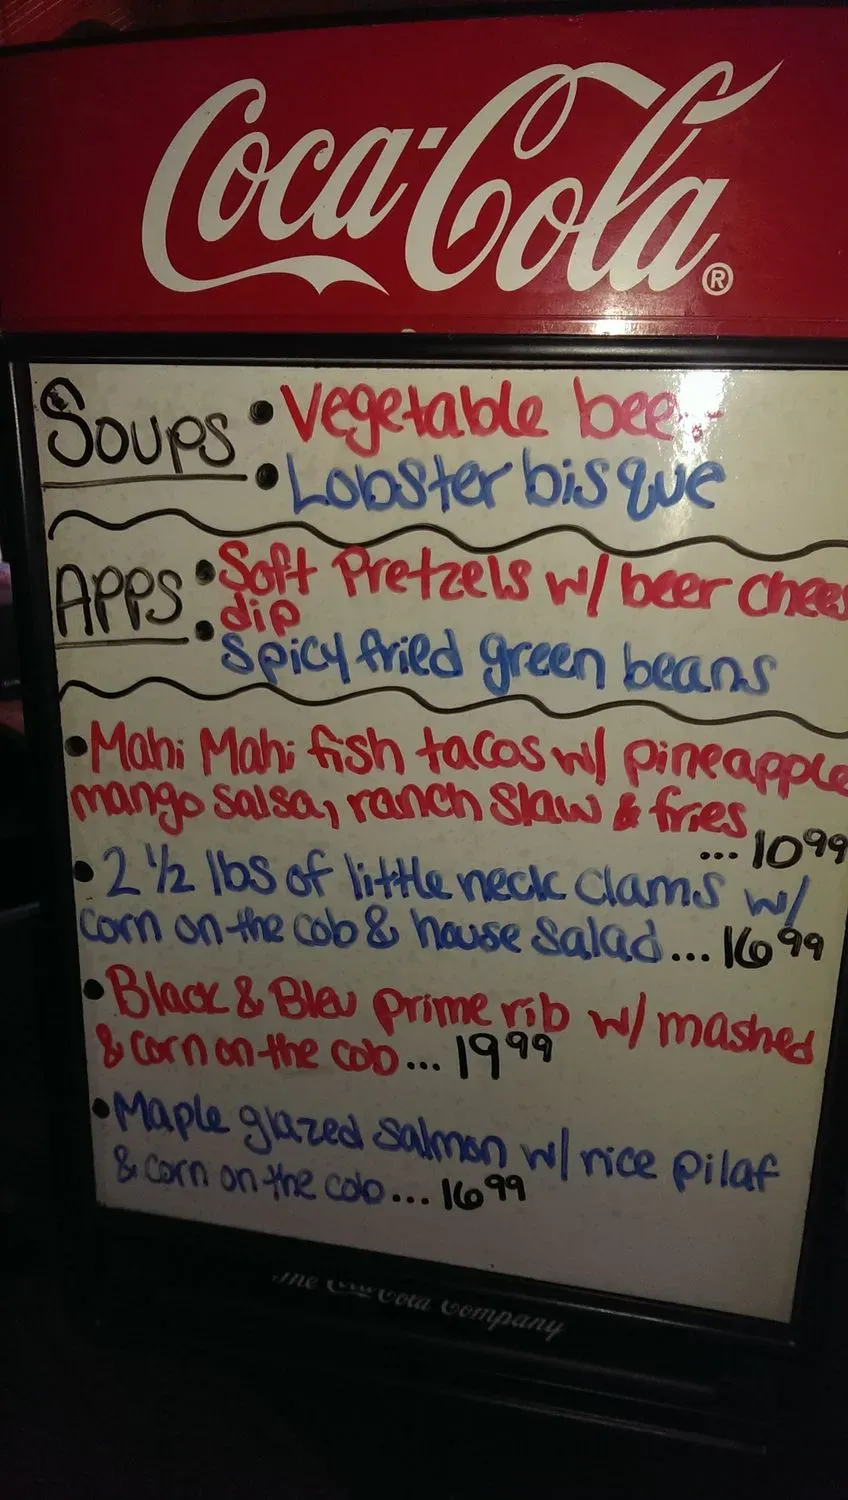 Coca-Cola®
Soups • Vegetable
• Lobster bisque
APPS • Soft Pretzels w/ beer chees
dip
• Spicy fried green beans
• Mahi Mahi fish tacos w/ pineapple
mango salsa, ranch slaw & fries
... 10.99
• 2 1/2 lbs of little neck clams w/
corn on the cob & house salad... 16.99
• Black & Bleu prime rib w/ mashed
& corn on the cob... 19.99
• Maple glazed salmon w/ rice pilaf
& corn on the cob... 16.99
The Coca-Cola Company